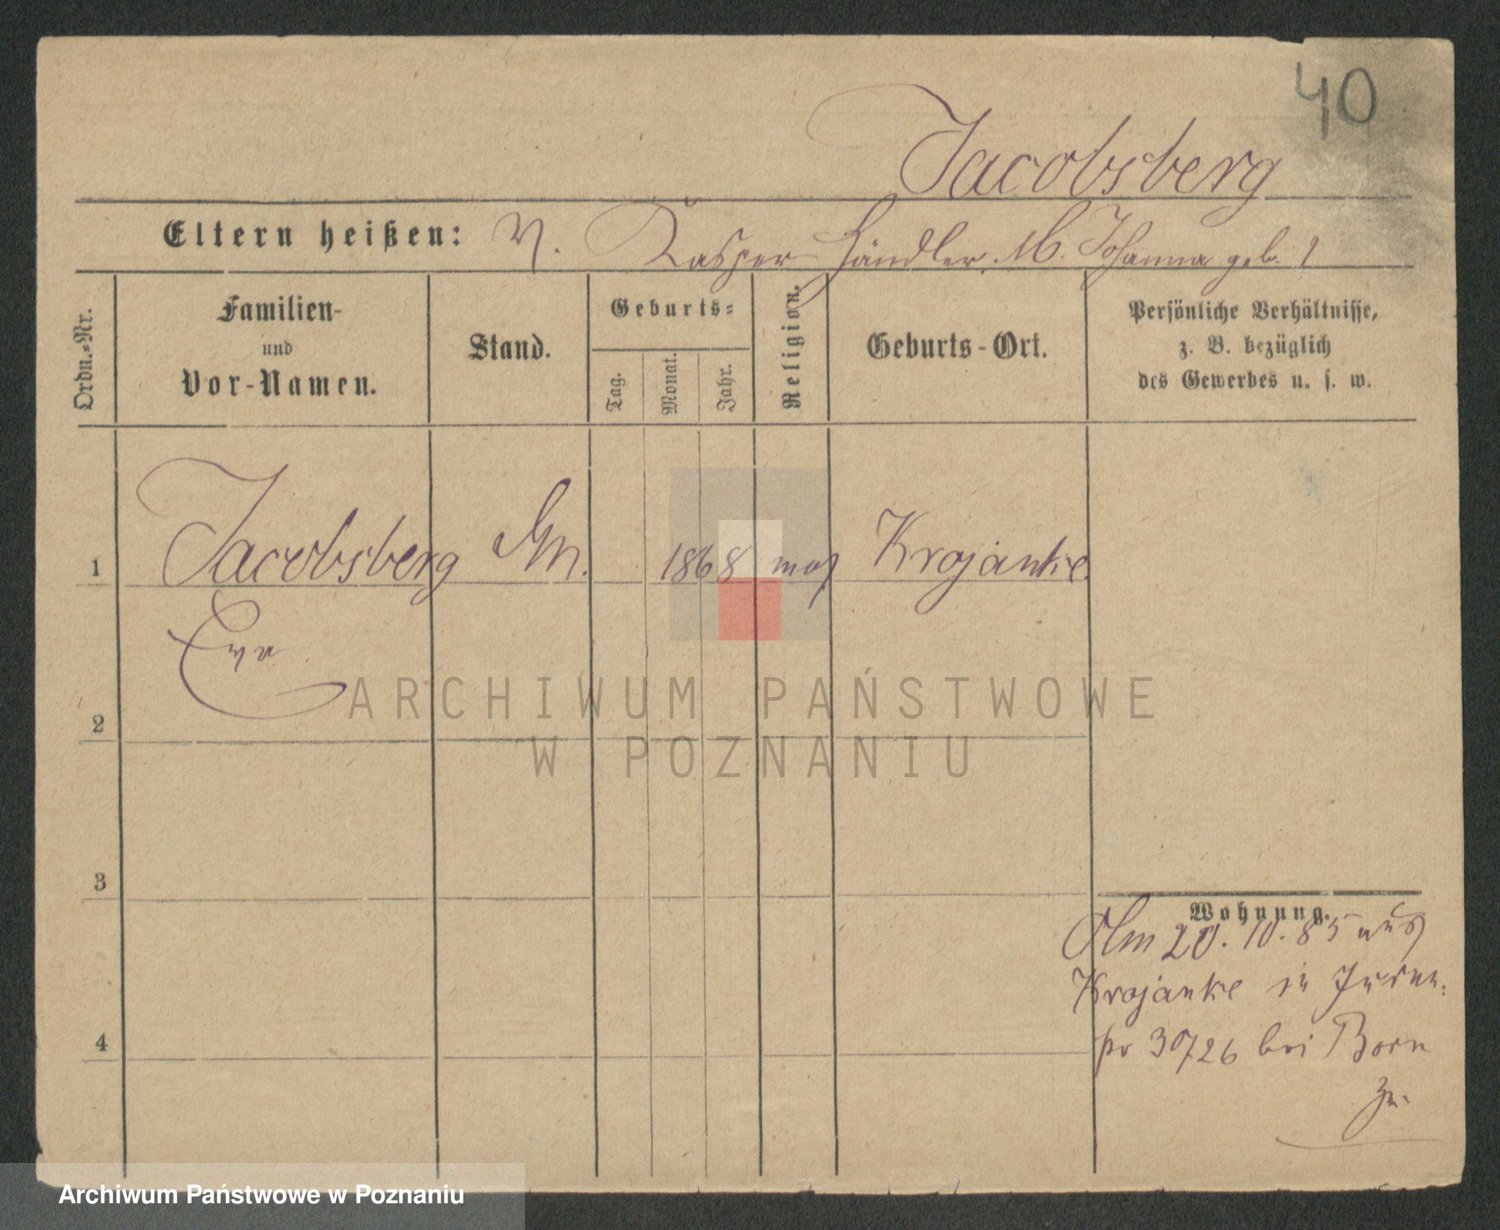 40
Jacobsberg
Eltern heißen: V. Kasper Händler. M. Johanna geb. ?
Ordn.-Nr.
Familien-
und
Vor-Namen.
Stand.
Geburts-
Tag.
Monat.
Jahr.
Religion.
Geburts-Ort.
Persönliche Verhältnisse,
z. B. bezüglich
des Gewerbes u. s. w.
1 Jacobsberg 1868 mos Krojanke
Eva
2
3
4
Wohnung.
Am 20.10.85 aus
Krojanke in
bei Born
zu.
ARCHIWUM PAŃSTWOWE
W POZNANIU
Archiwum Państwowe w Poznaniu